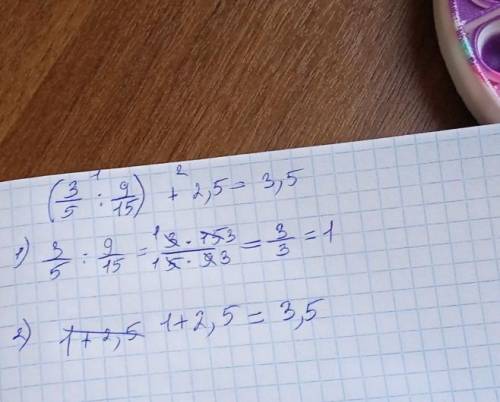 (3/5 : 9/15) + 2,5 = 3,5
1) 3/5 : 9/15 = 3 · 15 3/5 · 9 3 = 3/3 = 1
2) 1+2,5 1+2,5 = 3,5